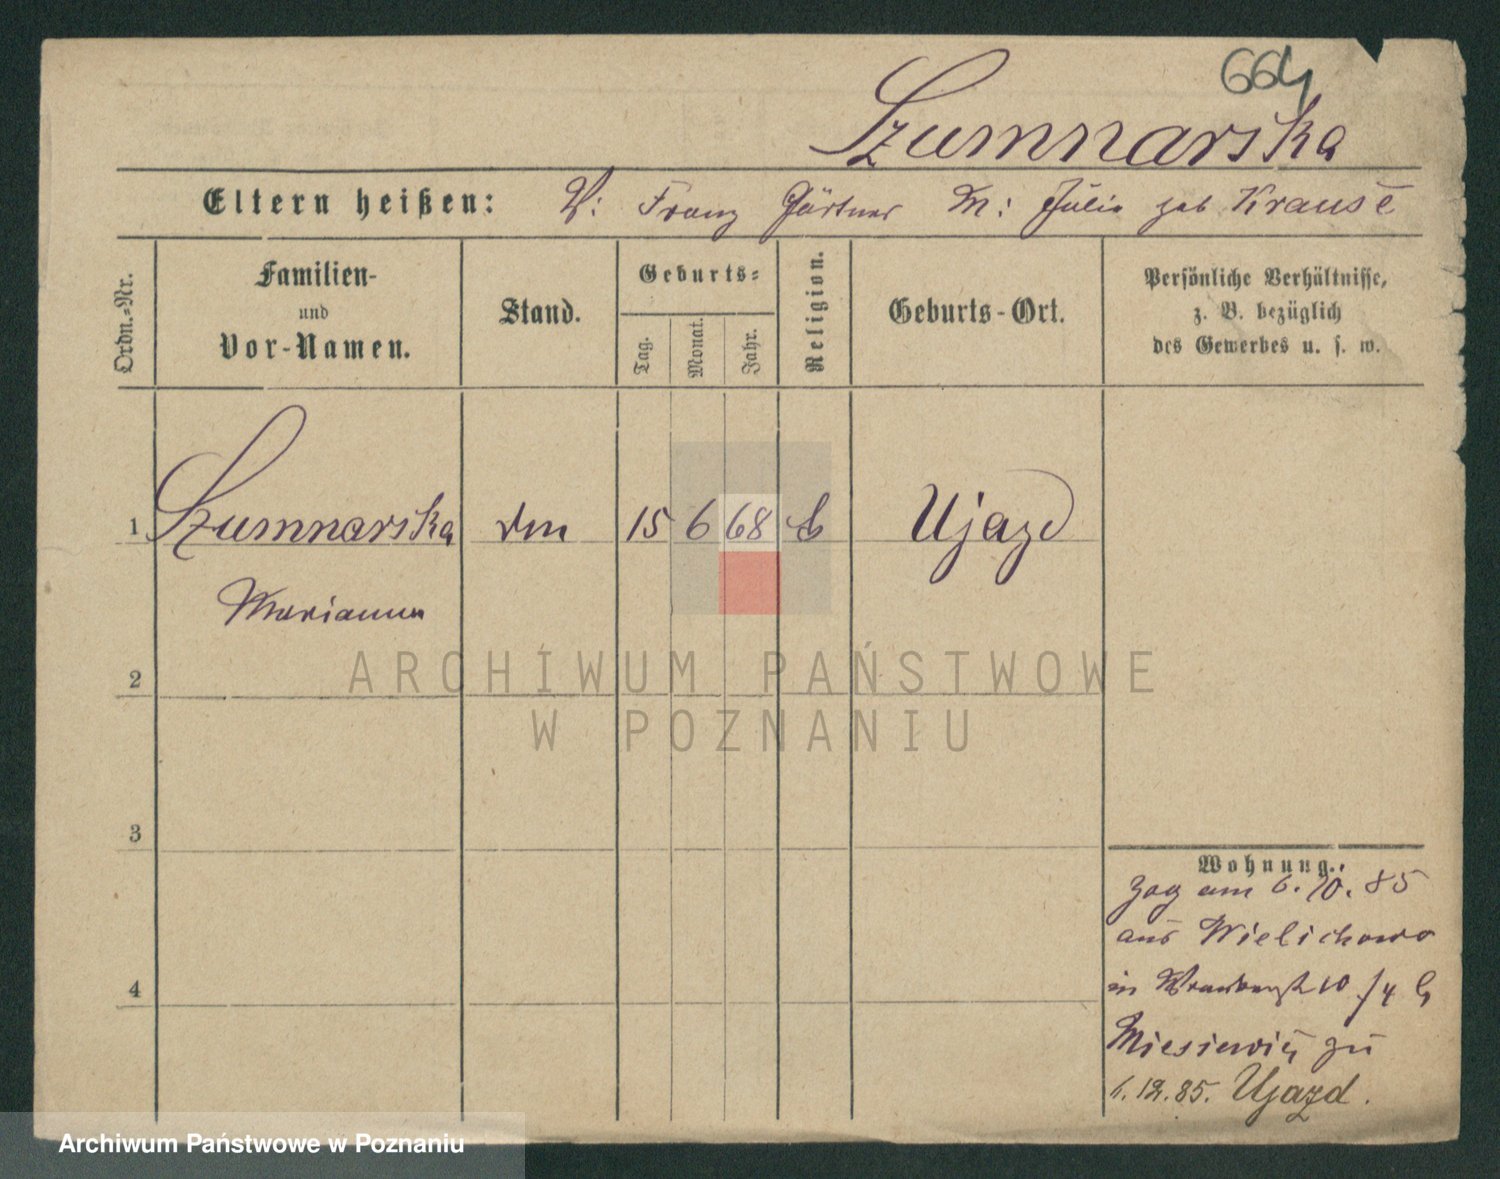 664
Szumnarska
Eltern heißen: V: Franz Gärtner M: Julie geb Krause
Ordn.-Nr.
Familien-
und
Vor-Namen.
Stand.
Geburts-
Tag.
Monat.
Jahr.
Religion.
Geburts-Ort.
Persönliche Verhältnisse,
z. B. bezüglich
des Gewerbes u. s. w.
1 Szumnarska 15 6 68 Ujazd
Marianna
2
3
4
Wohnung.
zog am 6. 10. 85
aus Wielichowo
in 10
zu
12. 85. Ujazd.
ARCHIWUM PAŃSTWOWE
W POZNANIU
Archiwum Państwowe w Poznaniu